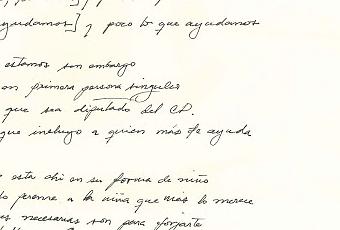 ayudamos] y poco lo que ayudamos
estamos sin embargo
en primera persona singular
que sea diputado del CP.
que incluyo a quien más te ayuda
esta ahi en su forma de niño
a la niña que más lo merece
necesarias son para